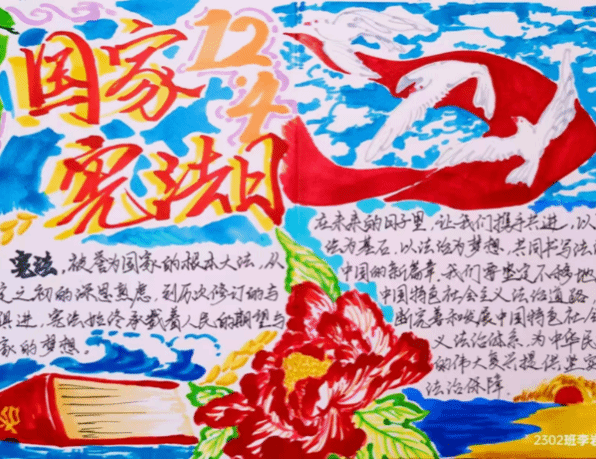 国家
12.4
宪法日
宪法,被誉为国家的根本大法,从
定之初的深思熟虑,到历次修订的与
俱进,宪法始终承载着人民的期望与
家的梦想。
在未来的日子里,让我们携手共进,以
法为基石,以法治为梦想,共同书写法
中国的新篇章。我们要坚定不移地
中国特色社会主义法治道路,
断完善和发展中国特色社会
义法治体系,为中华民
的伟大复兴提供坚实
法治保障。
2302班李岩